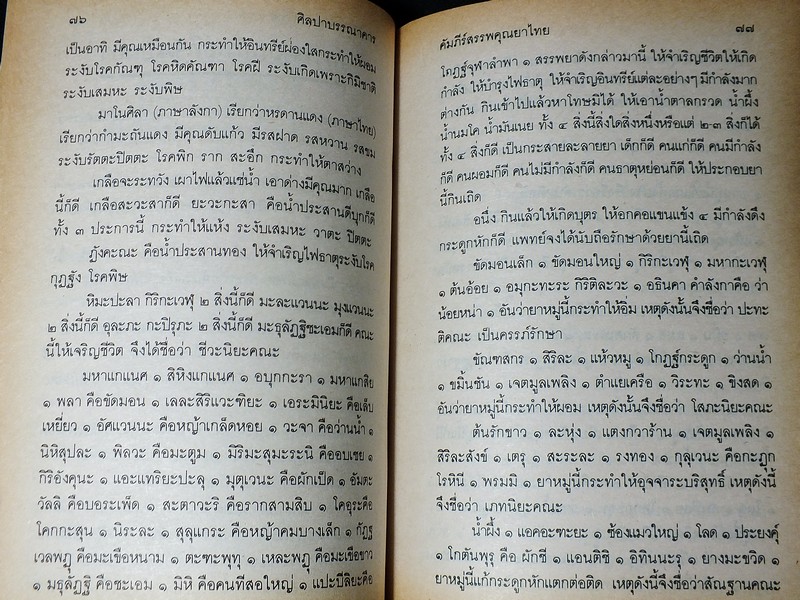 ๗๖ ศิลปาบรรณาคาร
เป็นอาทิ มีคุณเหมือนกัน กระทำให้อินทรีย์ผ่องใสกระทำให้ผอม
ระงับโรคกัณฑุ โรคหิดคัณฑา โรคฝี ระงับเกิดเพราะกิมิชาติ
ระงับเสมหะ ระงับพิษ
มาโนศิลา (ภาษาลังกา) เรียกว่าหรดานแดง (ภาษาไทย)
เรียกว่ากำมะถันแดง มีคุณดับแก้ว มีรสฝาด รสหวาน รสขม
ระงับรัตตะปิตตะ โรคพิก ราก สะอึก กระทำให้ตาสว่าง
เกลือจะระทวัง เผาไฟแล้วแช่น้ำ เอาด่างมีคุณมาก เกลือ
นี้ก็ดี เกลือสะวะสาก็ดี ยะวะกะสา คือน้ำประสานดีบุกก็ดี
ทั้ง ๓ ประการนี้ กระทำให้แห้ง ระงับเสมหะ วาตะ ปิตตะ
ภังคะณะ คือน้ำประสานทอง ให้จำเริญไฟธาตุระงับโรค
กุฏฐัง โรคพิษ
หิมะปะลา กิริกะเวฬุ ๒ สิ่งนี้ก็ดี มะละแวนนะ มุงแวนนะ
๒ สิ่งนี้ก็ดี อุละภะ กะปิรุภะ ๒ สิ่งนี้ก็ดี มะธุลัฏฐิชะเอมก็ดี คณะ
นี้ให้เจริญชีวิต จึงได้ชื่อว่า ชีวะนิยะคณะ
มหาแกแนศ ๑ สิหิงแกแนศ ๑ อบุกกะรา ๑ มหาแกสิย
๑ พลา คือขัดมอน ๑ เลละสิริแวะฑิยะ ๑ เอระมินิยะ คือเล็บ
เหยี่ยว ๑ อัศแวนนะ คือหญ้าเกล็ดหอย ๑ วะจา คือว่านน้ำ ๑
นิหิสุปละ ๑ พิลวะ คือมะตูม ๑ มิริมะสุมะระนิ คืออบเชย ๑
กิริอังคุนะ ๑ แอะแทริยะปะลุ ๑ มุตุเวนะ คือผักเป็ด ๑ อัมตะ
วัลลิ คือบอระเพ็ด ๑ สะตาวะริ คือรากสามสิบ ๑ โคอุระคือ
โคกกะสุน ๑ นิระละ ๑ สุลุแกระ คือหญ้าคมบางเล็ก ๑ กัฏฐ
เวลพฏุ คือมะเขือหนาม ๑ ตะฑะพุทุ ๑ เหละพฏุ คือมะเขือขาว
๑ มธุลัฏฐิ คือชะเอม ๑ มิหิ คือคนทีสอใหญ่ ๑ แปะปิลิยะคือ
คัมภีร์สรรพคุณยาไทย ๗๗
โกฏฐ์จุฬาลำพา ๑ สรรพยาดังกล่าวมานี้ ให้จำเริญชีวิตให้เกิด
กำลัง ให้บำรุงไฟธาตุ ให้จำเริญอินทรีย์แต่ละอย่างๆ มีกำลังมาก
ต่างกัน กินเข้าไปแล้วหาโทษมิได้ ให้เอาน้ำตาลกรวด น้ำผึ้ง
น้ำนมโค น้ำมันเนย ทั้ง ๔ สิ่งนี้สิ่งใดสิ่งหนึ่งหรือแต่ ๒-๓ สิ่งก็ได้
ทั้ง ๔ สิ่งก็ดี เป็นกระสายละลายยา เด็กก็ดี คนแก่ก็ดี คนมีกำลัง
ก็ดี คนผอมก็ดี คนไม่มีกำลังก็ดี คนธาตุหย่อนก็ดี ให้ประกอบยา
นี้กินเถิด
อนึ่ง กินแล้วให้เกิดบุตร ให้อกคอแขนแข้ง ๔ มีกำลังดึง
กระดูกหักก็ดี แพทย์จงได้นับถือรักษาด้วยยานี้เถิด
ขัดมอนเล็ก ๑ ขัดมอนใหญ่ ๑ กิริกะเวฬุ ๑ มหากะเวฬุ
๑ ต้นอ้อย ๑ อมุกะทะระ กิริติละวะ ๑ อธินคา คำลังกาคือ ว่า
น้อยหน่า ๑ อันว่ายาหมู่นี้กระทำให้อิ่ม เหตุดังนั้นจึงชื่อว่า ปะทะ
ติคณะ เป็นครรภ์รักษา
ขัณฑสกร ๑ สิริละ ๑ แห้วหมู ๑ โกฏฐ์กระดูก ๑ ว่านน้ำ
๑ ขมิ้นชัน ๑ เจตมูลเพลิง ๑ ตำแยเครือ ๑ วิระทะ ๑ ขิงสด ๑
อันว่ายาหมู่นี้กระทำให้ผอม เหตุดังนั้นจึงชื่อว่า โสภะนิยะคณะ
ต้นรักขาว ๑ ละหุ่ง ๑ แตงกวาร้าน ๑ เจตมูลเพลิง ๑
สิริละสังข์ ๑ เตรุ ๑ สะระละ ๑ รงทอง ๑ กุลุเวนะ คือกะฏุก
โรหินี ๑ พรมมิ ๑ ยาหมู่นี้กระทำให้อุจจาระบริสุทธิ์ เหตุดังนี้
จึงชื่อว่า เภทนิยะคณะ
น้ำผึ้ง ๑ แอคอะฑะยะ ๑ ซ้องแมวใหญ่ ๑ โลด ๑ ประยงค์ุ
๑ โกตันพุรุ คือ ผักชี ๑ แอนติชิ ๑ อิทินนะรุ ๑ ยางมะขวิด ๑
ยาหมู่นี้แก้กระดูกหักแตกต่อติด เหตุดังนี้จึงชื่อว่าสัณฐานคณะ